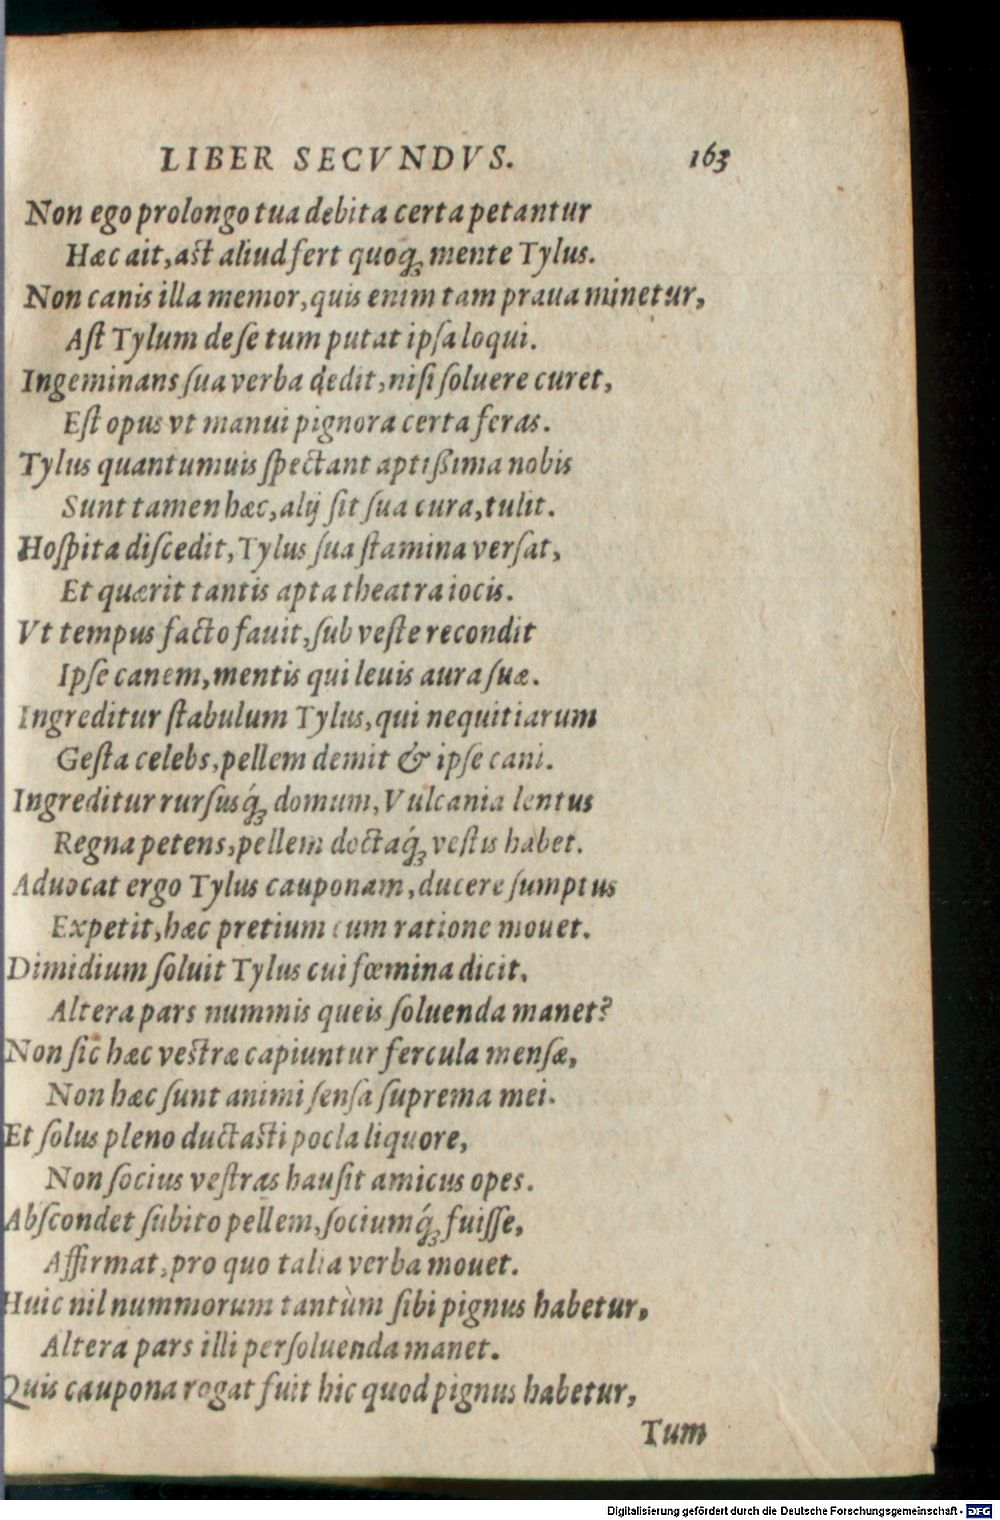 LIBER SECVNDVS. 163
Non ego prolongo tua debita certa petantur
Hæc ait, ast aliud fert quoq; mente Tylus.
Non canis illa memor, quis enim tam praua minetur,
Ast Tylum de se tum putat ipsa loqui.
Ingeminans sua verba dedit, nisi soluere curet,
Est opus vt manui pignora certa feras.
Tylus quantumuis spectant aptißima nobis
Sunt tamen hæc, alij sit sua cura, tulit.
Hospita discedit, Tylus sua stamina versat,
Et quærit tantis apta theatra iocis.
Vt tempus facto fauit, sub veste recondit
Ipse canem, mentis qui leuis aura suæ.
Ingreditur stabulum Tylus, qui nequitiarum
Gesta celebs, pellem demit & ipse cani.
Ingreditur rursusq́; domum, Vulcania lentus
Regna petens, pellem doctaq́; vestis habet.
Aduocat ergo Tylus cauponam, ducere sumptus
Expetit, hæc pretium cum ratione mouet.
Dimidium soluit Tylus cui fœmina dicit,
Altera pars nummis queis soluenda manet?
Non sic hæc vestræ capiuntur fercula mensæ,
Non hæc sunt animi sensa suprema mei.
Et solus pleno ductasti pocla liquore,
Non socius vestras hausit amicus opes.
Abscondet subito pellem, sociumq́; fuisse,
Affirmat, pro quo talia verba mouet.
Huic nil nummorum tantùm sibi pignus habetur,
Altera pars illi persoluenda manet.
Quis caupona rogat fuit hic quod pignus habetur,
Tum
Digitalisierung gefördert durch die Deutsche Forschungsgemeinschaft - DFG